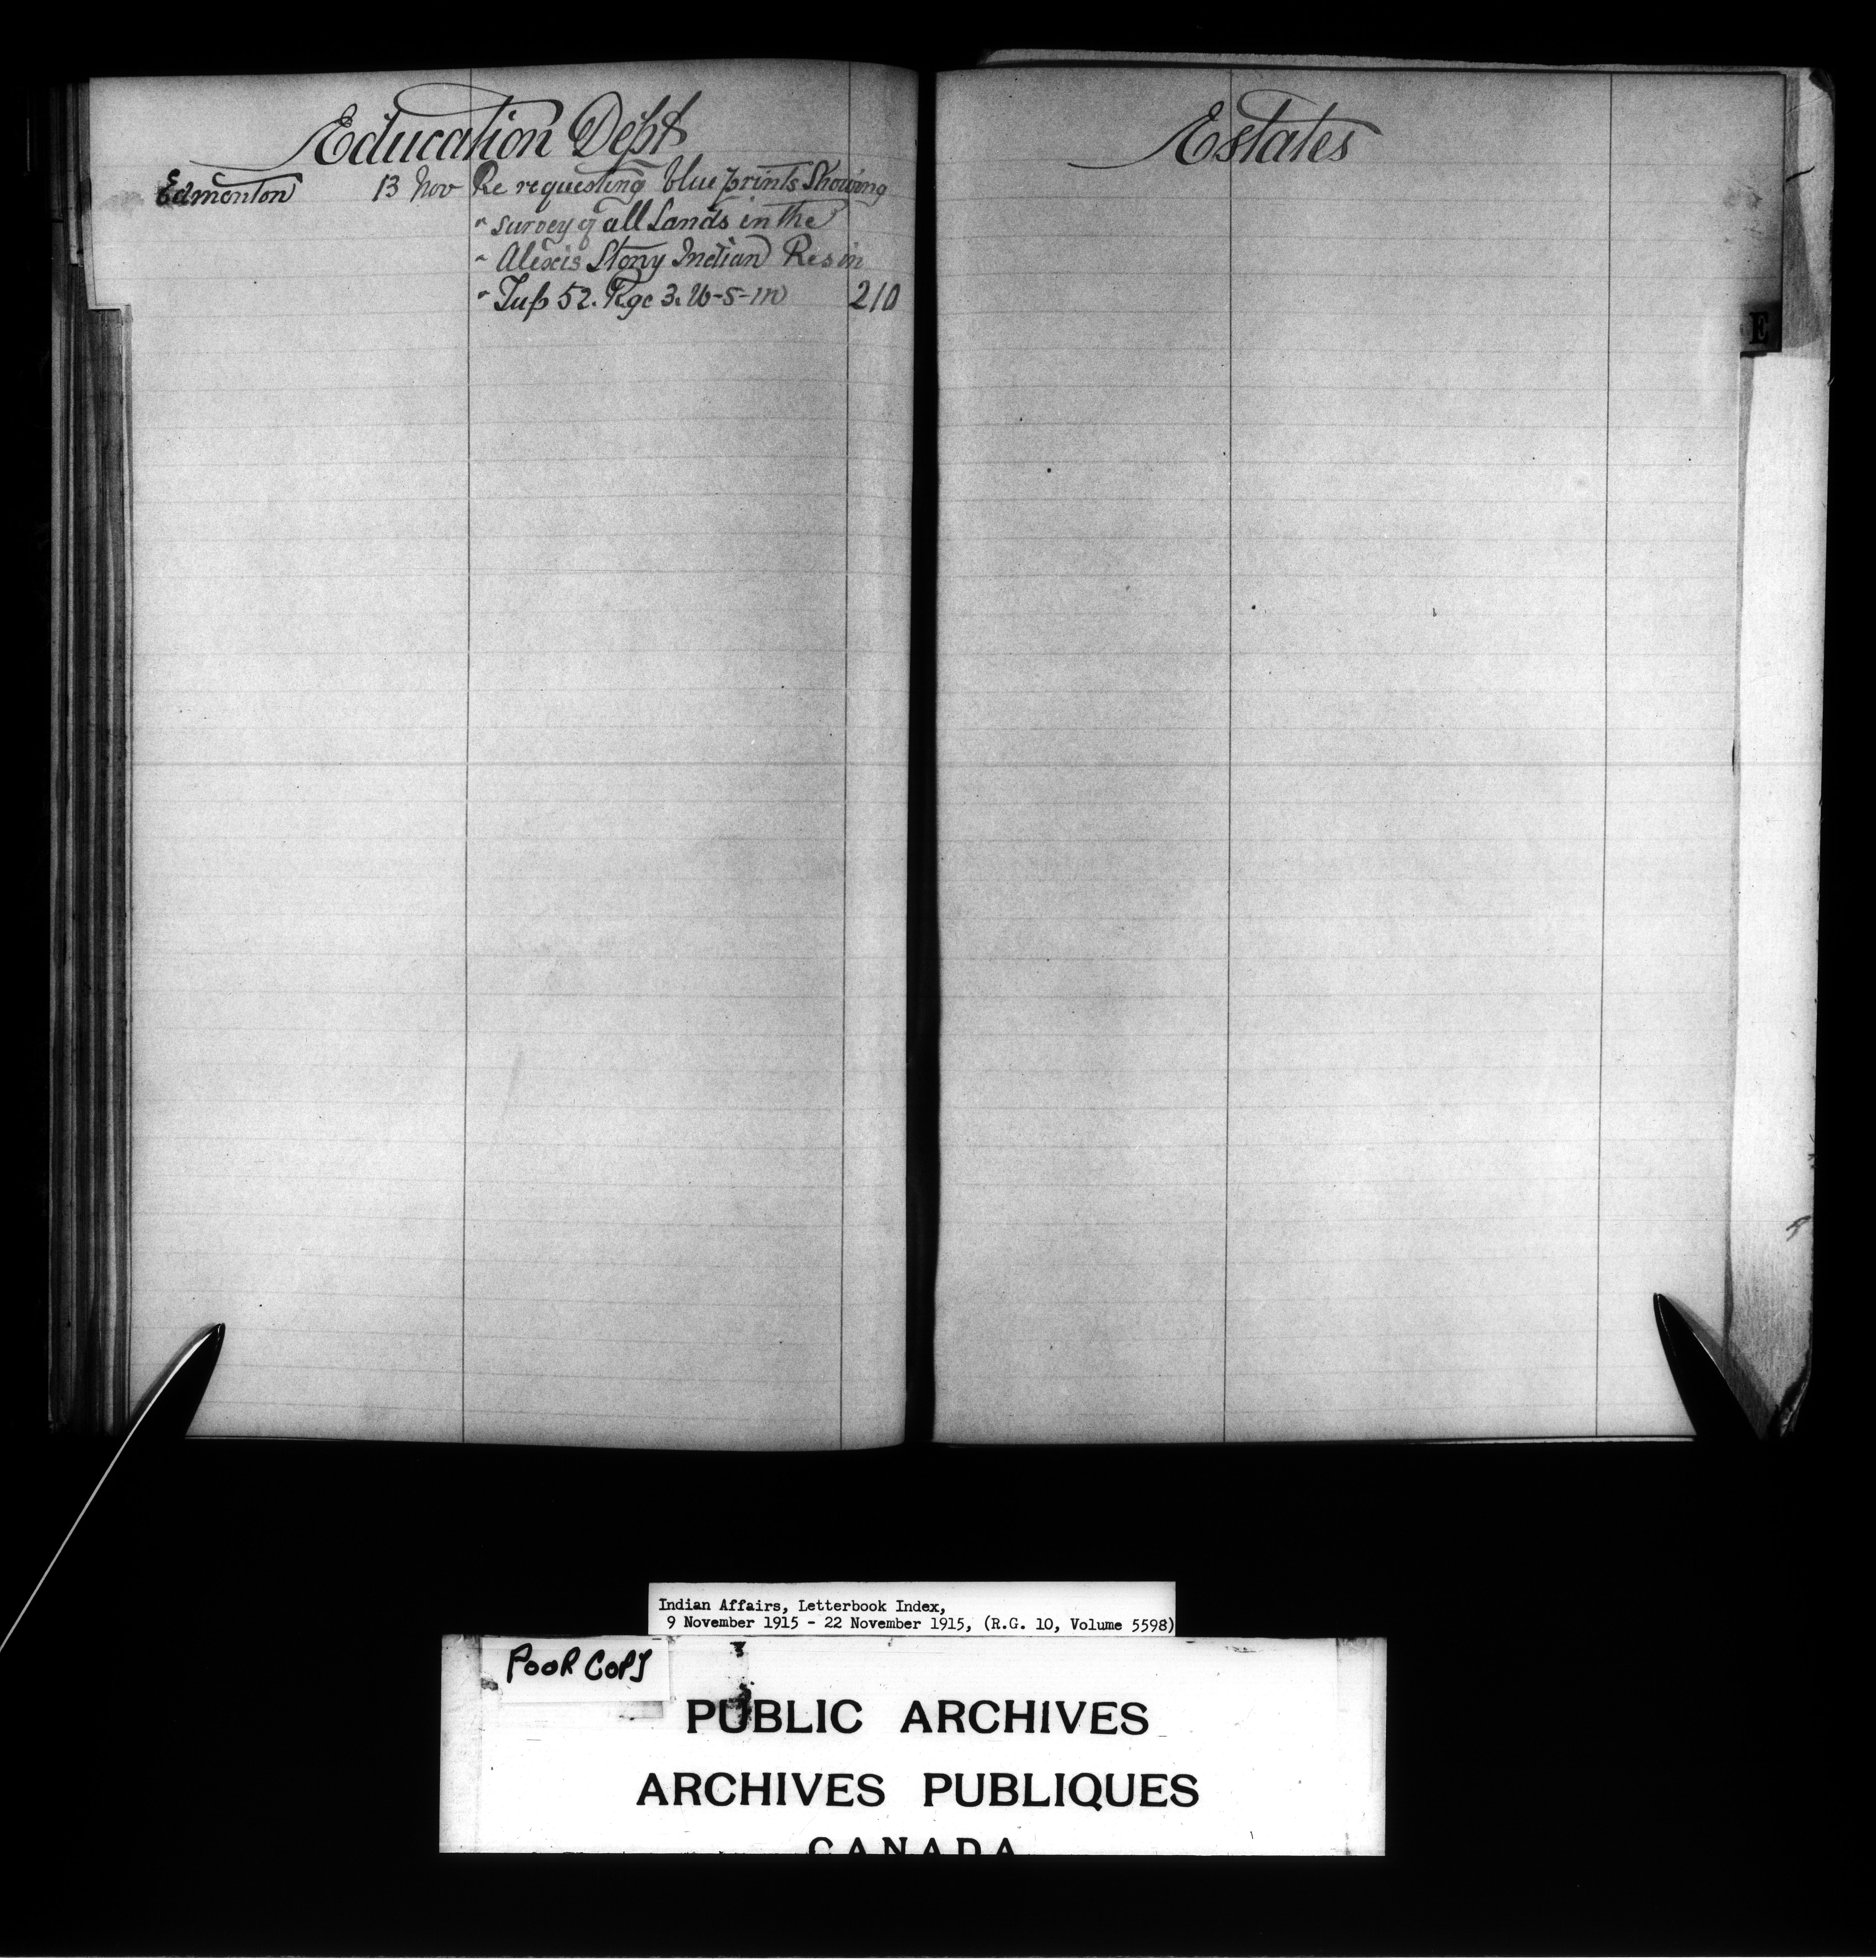 Education Dept
Edmonton 13 Nov Re requesting blue prints Showing
" survey of all Lands in the
" Alexis Stony Indian Res in
" Tup 52. Rge 3. W-5-m 210
Estates
E
Indian Affairs, Letterbook Index,
9 November 1915 - 22 November 1915, (R.G. 10, Volume 5598)
POOR COPY
PUBLIC ARCHIVES
ARCHIVES PUBLIQUES
CANADA